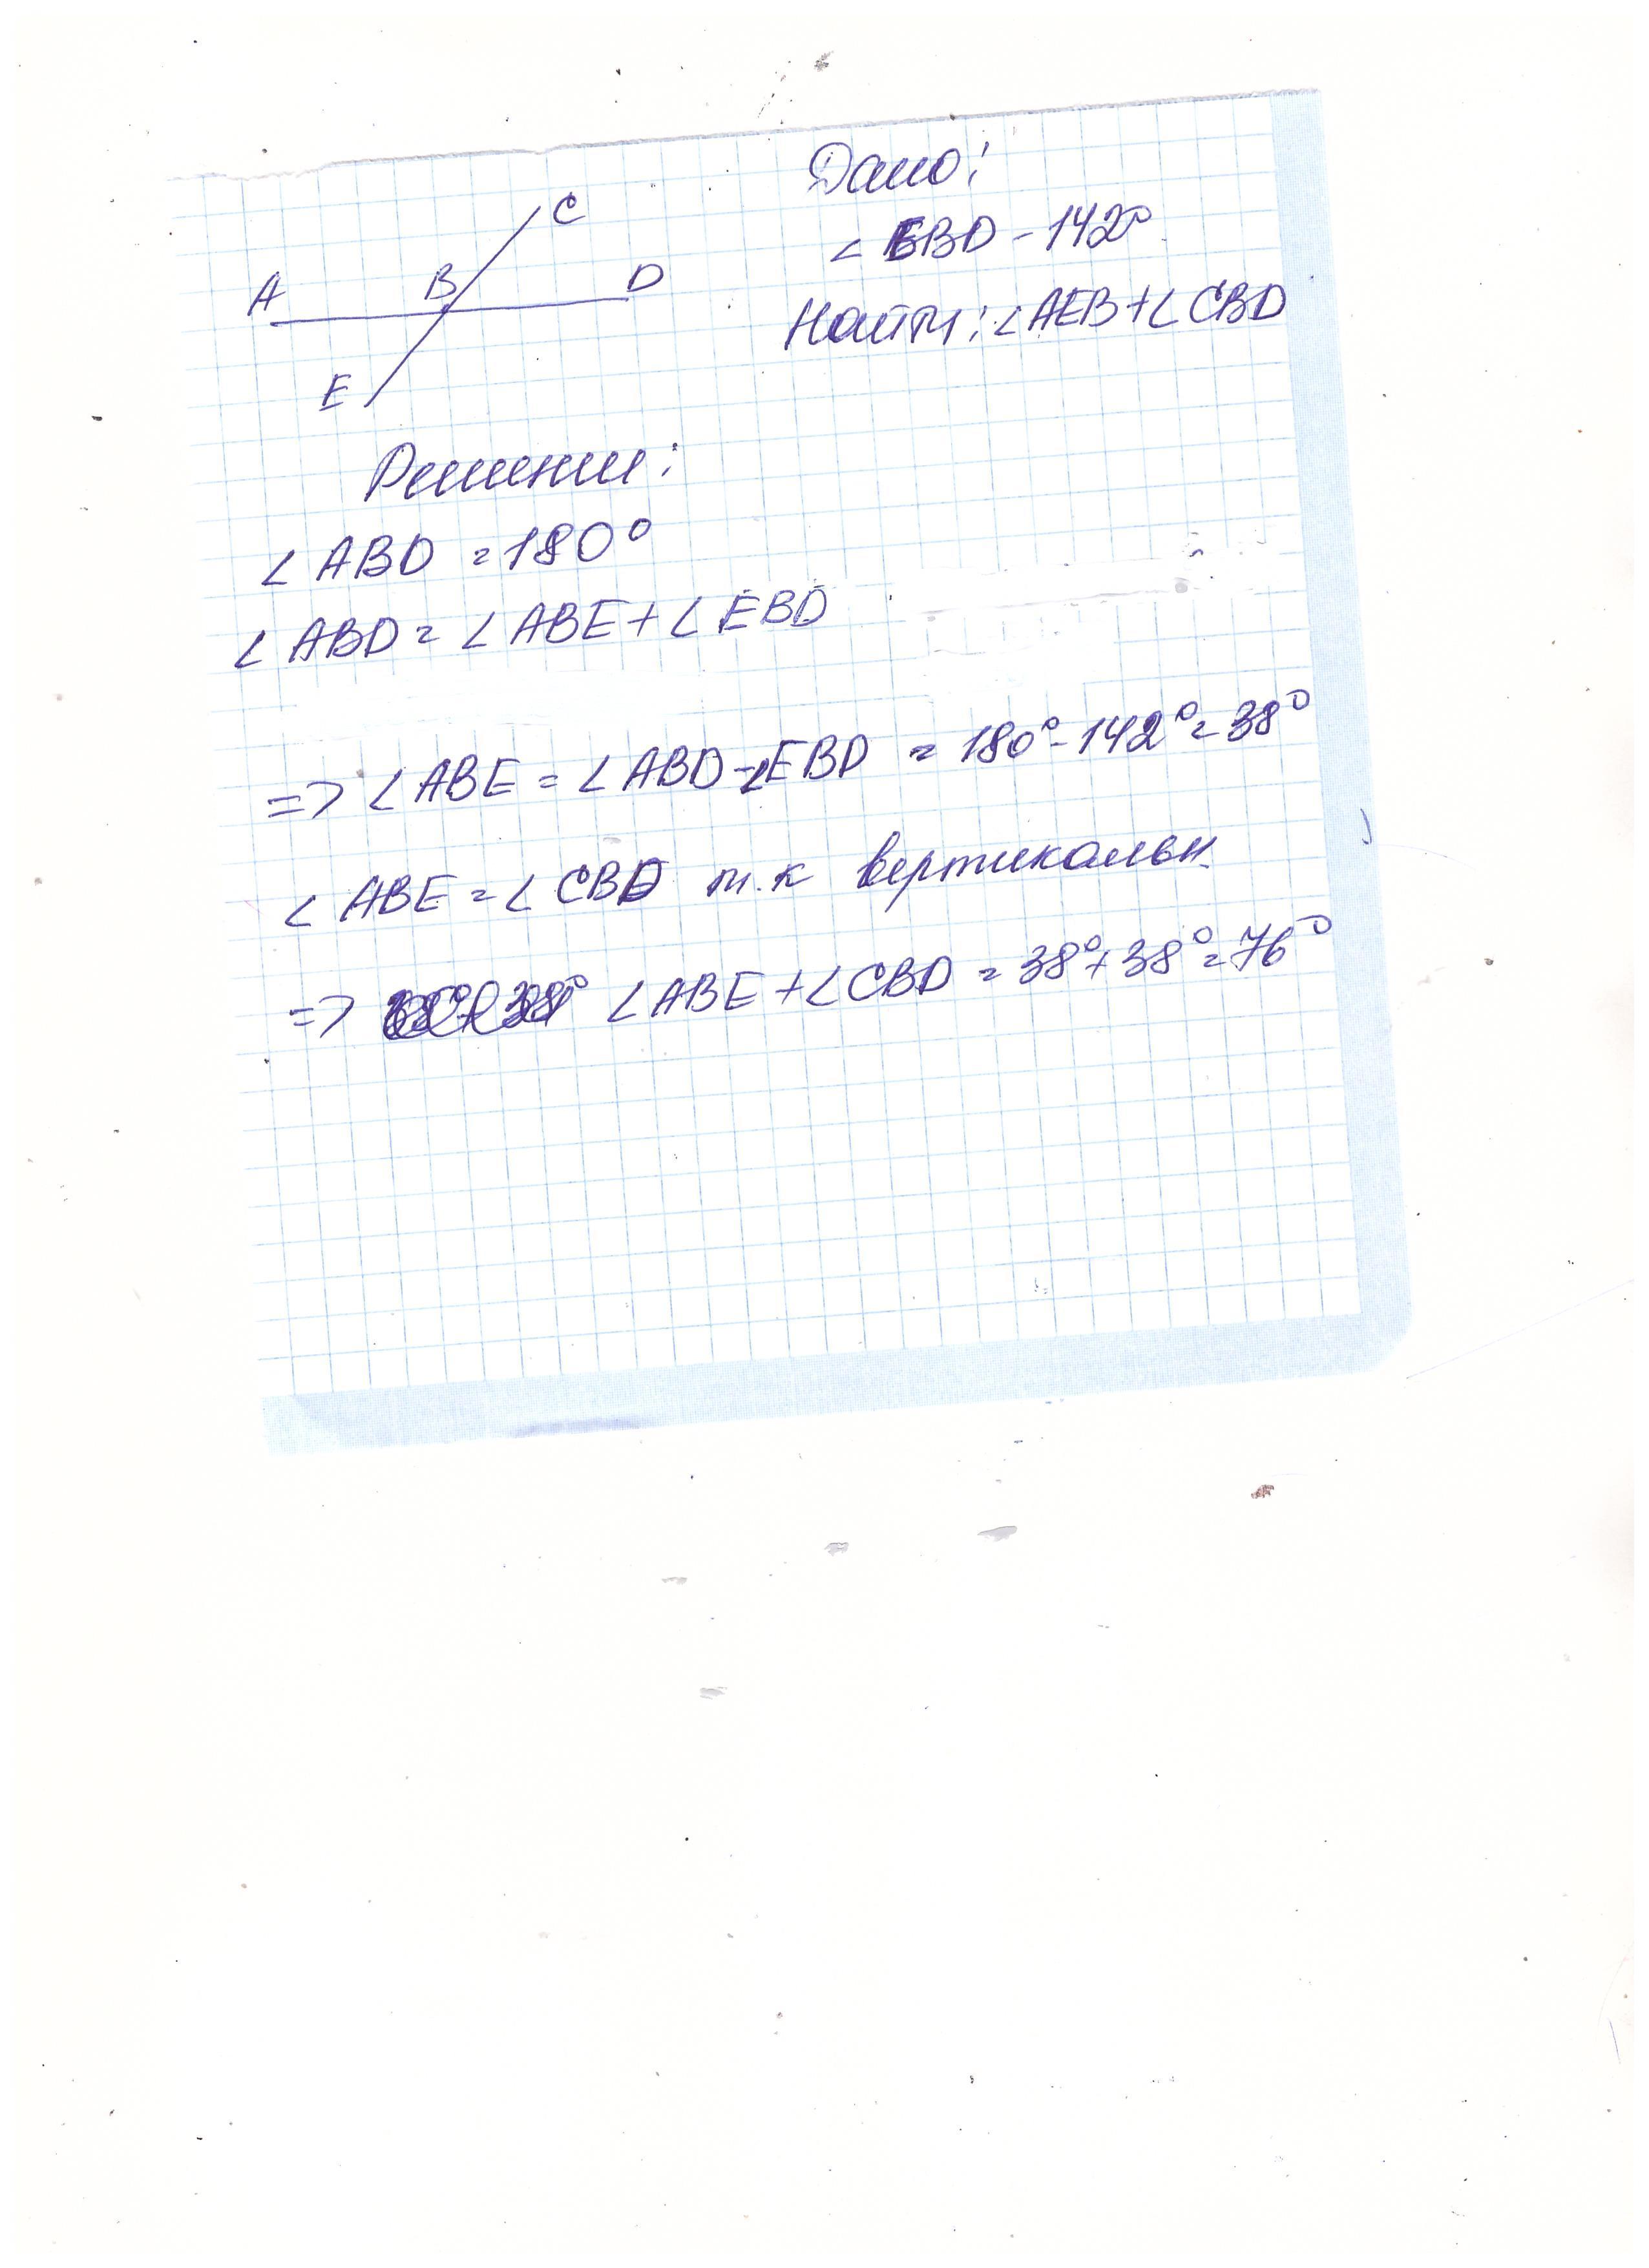 C
A B D
E
Дано:
∠ EBD - 142°
Найти: ∠AEB+∠CBD
Решении:
∠ ABD = 180°
∠ ABD = ∠ ABE + ∠ EBD
=> ∠ ABE = ∠ ABD - ∠EBD = 180° - 142° = 38°
∠ ABE = ∠ CBD т.к вертикальн.
=> ∠ABE + ∠CBD = 38° + 38° = 76°